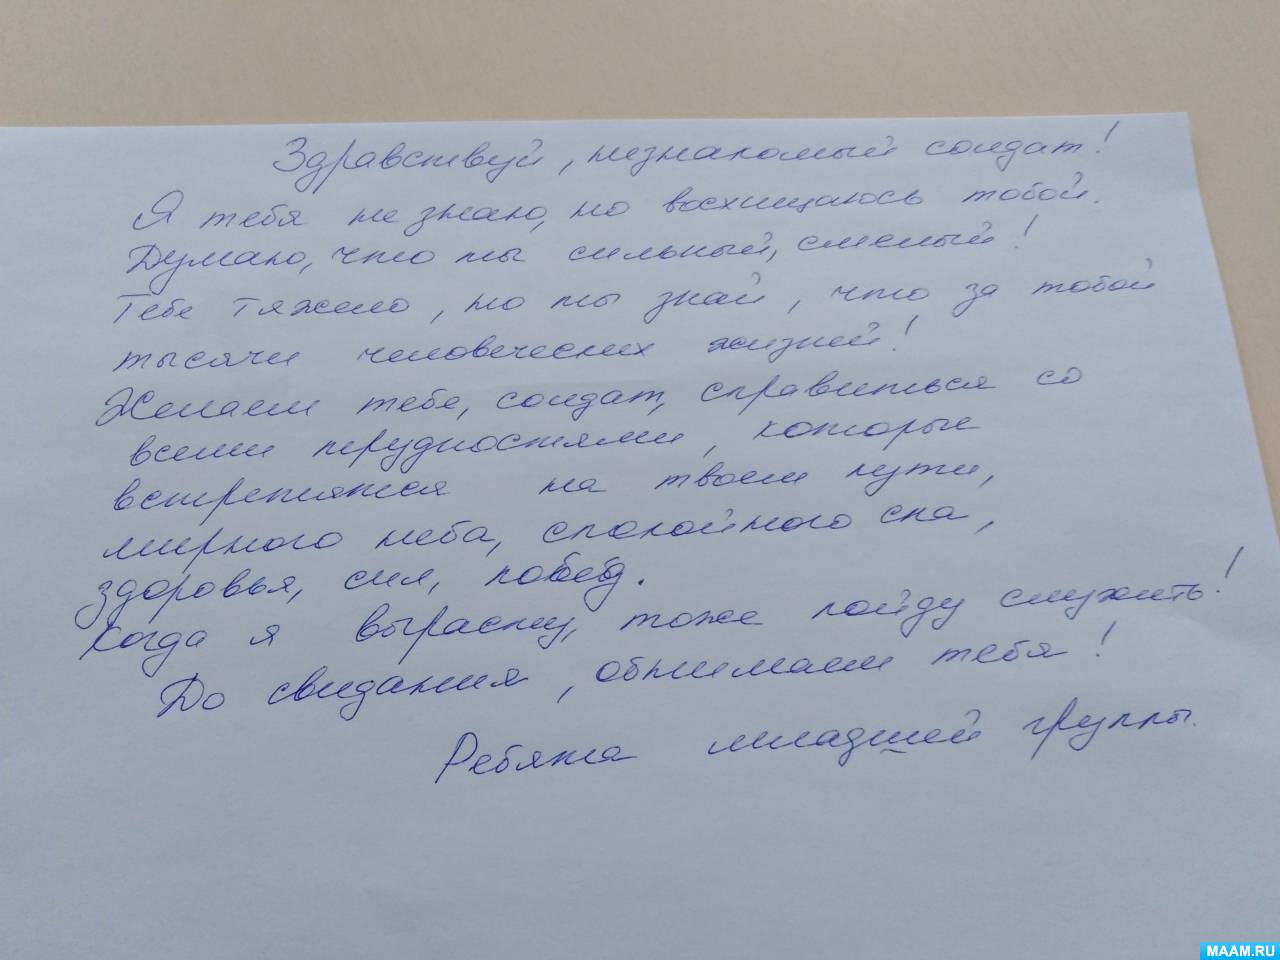 Здравствуй, незнакомый солдат!
Я тебя не знаю, но восхищаюсь тобой.
Думаю, что ты сильный, смелый!
Тебе тяжело, но ты знай, что за тобой
тысячи человеческих жизней!
Желаем тебе, солдат, справиться со
всеми трудностями, которые
встретятся на твоем пути,
мирного неба, спокойного сна,
здоровья, сил, побед.
Когда я вырасту, тоже пойду служить!
До свидания, обнимаем тебя!
Ребята младшей группы.
MAAM.RU